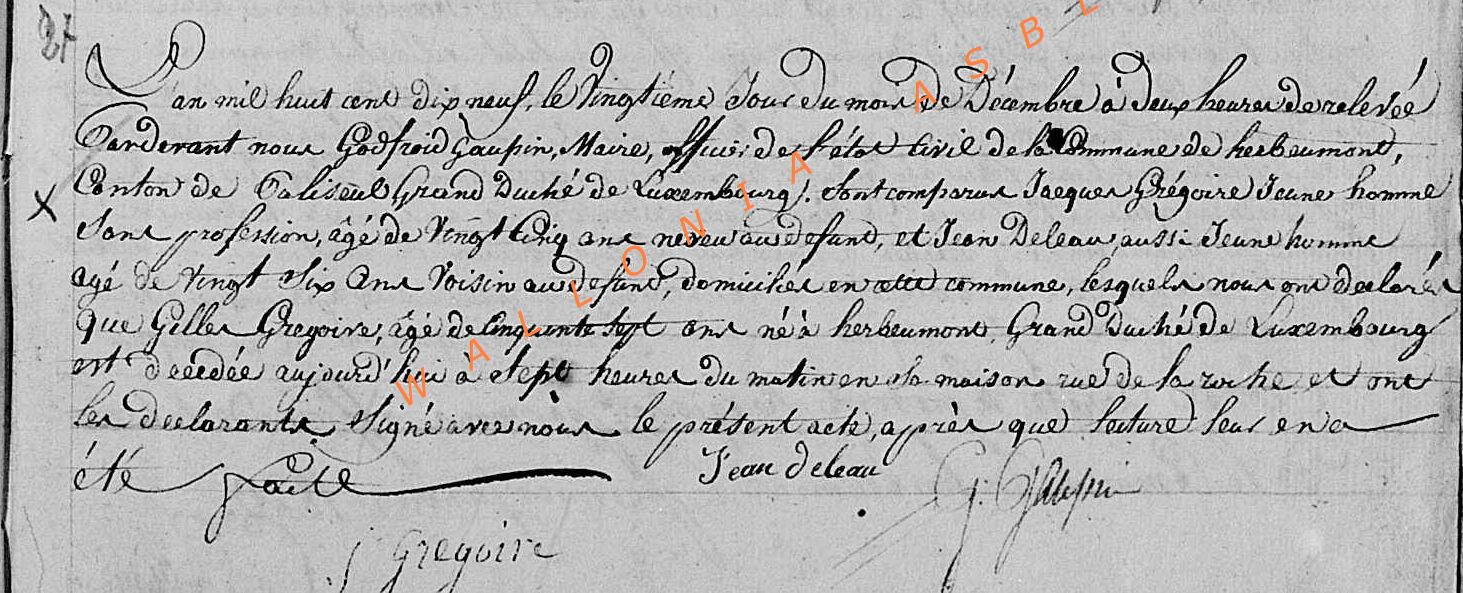 27
L'an mil huit cent dix neuf, le Vingtième Jour du mois de Décembre à deux heures de relevée
Pardevant nous Godfroid Gaupin, Maire, officier de l'état Civil de la Commune de herbeumont,
Canton de Paliseul Grand Duché de Luxembourg). Sont comparus Jacques Grégoire Jeune homme
Sans profession, âgé de Vingt Cinq ans neveu au défunt, et Jean Deleau, aussi Jeune homme
agé de Vingt Six ans Voisin au défunt, domiciliés en cette commune, lesquels nous ont declarés
que Gilles Gregoire, âgé de Cinquante Sept ans né à herbeumont Grand Duché de Luxembourg
est décédée aujourd'hui à Sept heures du matin en Sa maison rue de la roche et ont
les declarants Signé avec nous le présent acte, après que lecture leur en a
été faite
Jean deleau
G. Gaupin
J Gregoire
X
WALLONIA ASBL